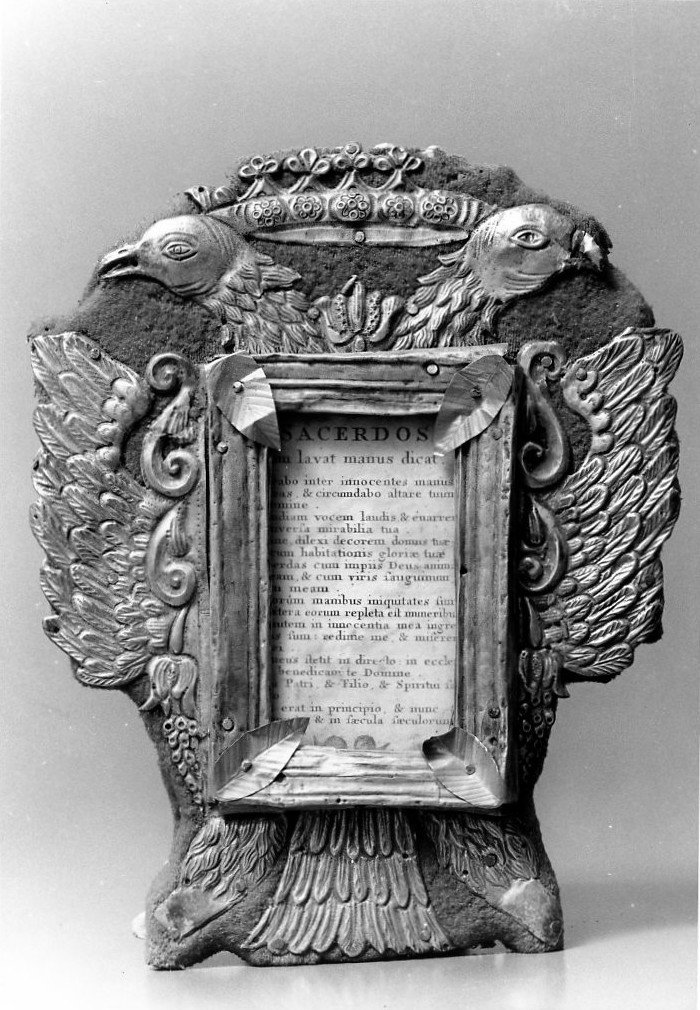 SACERDOS
lavat manus dicat
abo inter innocentes manus
& circumdabo altare tuum
diam vocem laudis, & enarrem
versa mirabilia tua
dilexi decorem domus tuæ
habitationis gloriæ tuæ
perdas cum impiis Deus anim
eam, & cum viris sanguinum
meam
orum manibus iniquitates sun
tera eorum repleta est muneribu
autem in innocentia mea ingre
s sum: redime me, & miserer
eus stetit in directo: in eccle
benedicam te Domine
Patri, & Filio, & Spiritui
erat in principio, & nunc
& in sæcula sæculorum